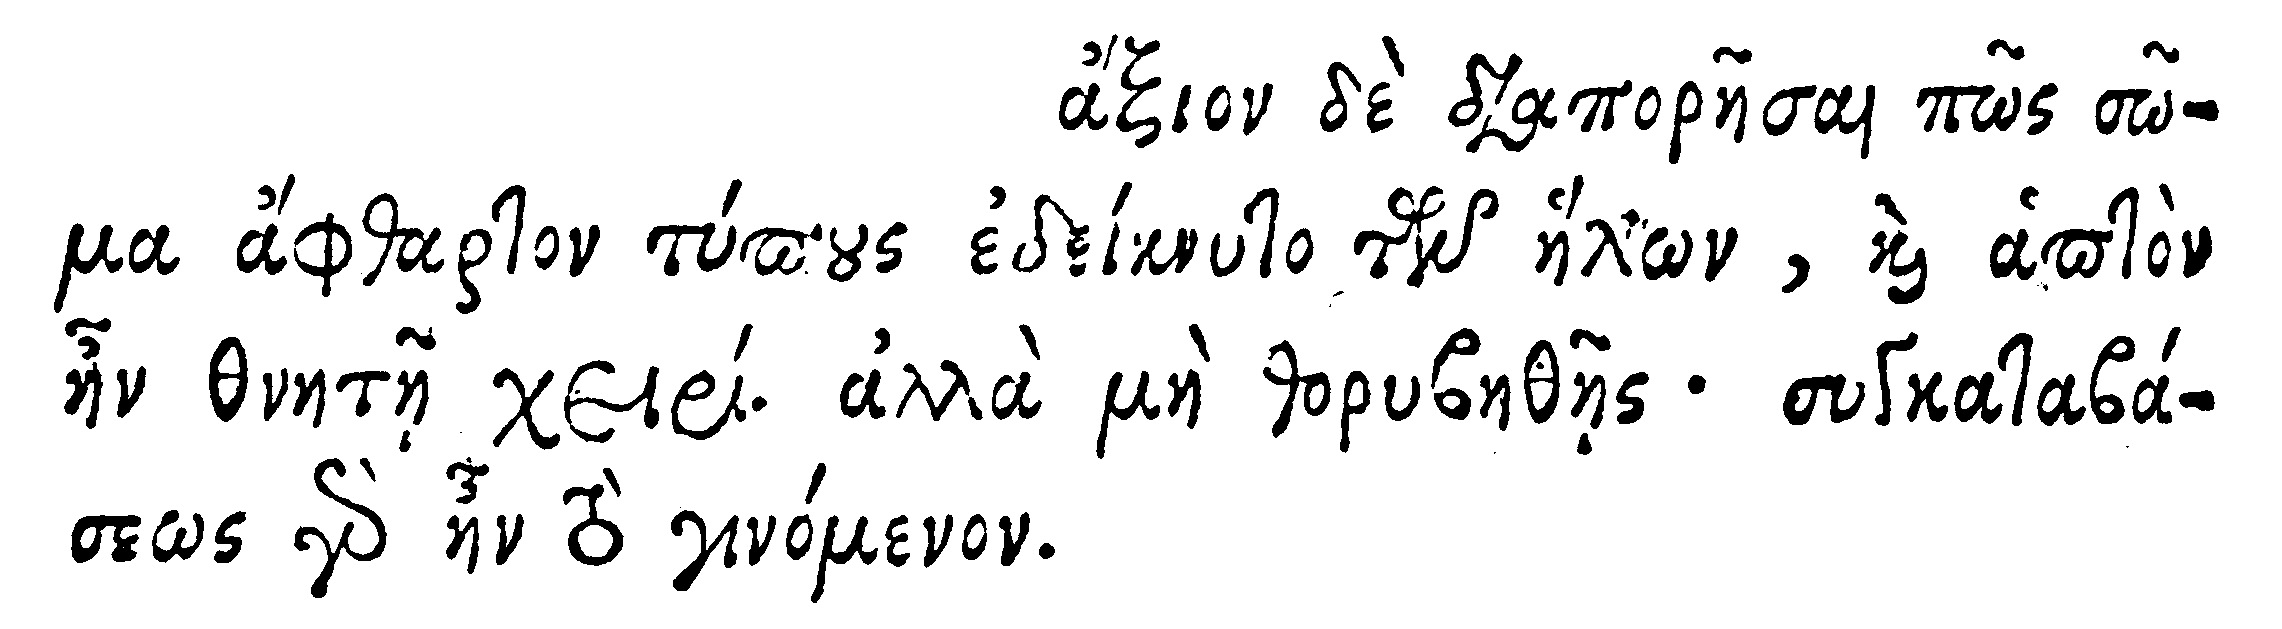 ἄξιον δὲ διαπορῆσαι πῶς σῶ-
μα ἄφθαρτον τύπους ἐδείκνυτο τῶν ἥλων, καὶ ἁπτὸν
ἦν θνητῇ χειρί. ἀλλὰ μὴ θορυβηθῇς· συγκαταβά-
σεως γὰρ ἦν τὸ γινόμενον.